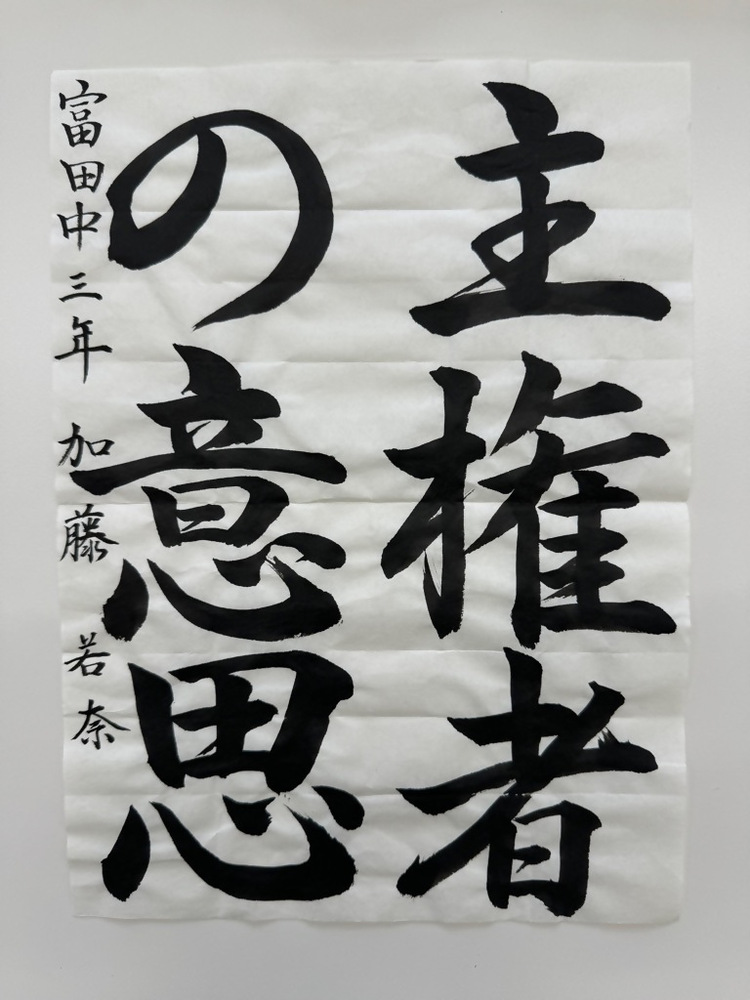 主権者
の意思
富田中三年 加藤若奈